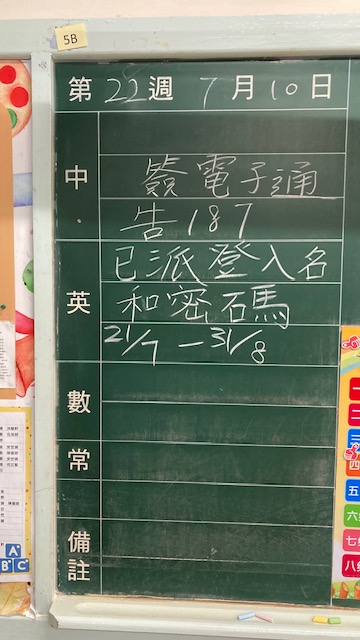 5B
第22週 7月10日
中
簽電子通
告187
已派登入名
英
和密碼
21/7 — 31/8
數
常
備註
一
二
三
四
五
六
七
八
A
B C